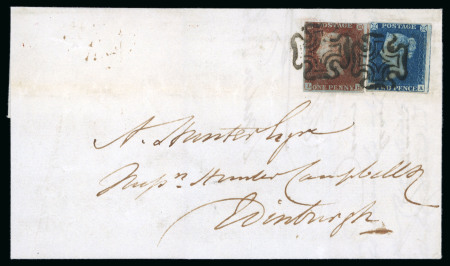 POSTAGE POSTAGE
ONE PENNY
A. Hunter Esqre
Messrs Hunter Campbell &
Edinburgh